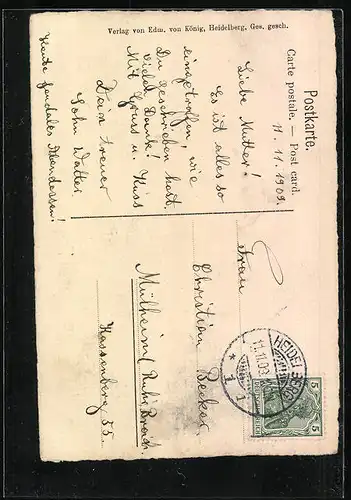 Postkarte.
Carte postale. — Post card.
11. 11. 1909.
Liebe Mutter!
Es ist alles so
eingetroffen, wie
Du geschrieben hast.
Vielen Dank!
Mit Gruss u. Kuss
Dein treuer
Sohn Walter
Heute feudales Abendessen!
Verlag von Edm. von König, Heidelberg, Ges. gesch.
Frau
Christian Becker.
Mülheim/Ruhr Broich
Kassenberg 55.
HEIDELBERG
11.11.09
* 1
1
5 5